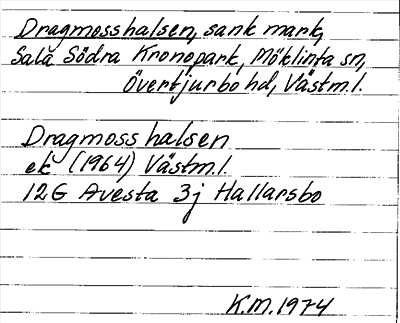 Dragmosshalsen, sank mark,
Sala Södra Kronopark, Möklinta sn,
Övertjurbo hd, Västm.l.
Dragmosshalsen
ek (1964) Västm.l.
12G Avesta 3j Hallarsbo
K.M. 1974